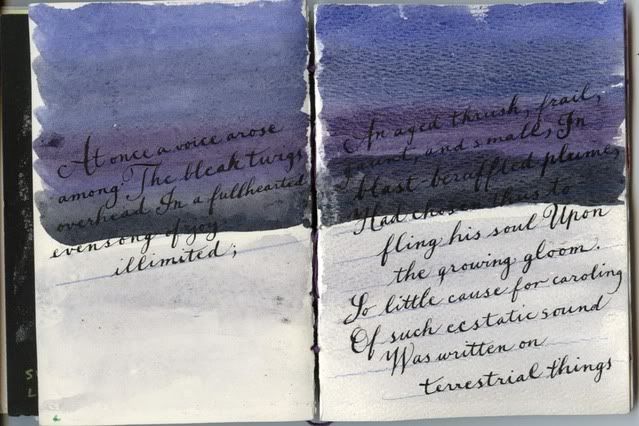 At once a voice arose
among The bleak twigs
overhead In a fullhearted
evensong of joy
illimited;
An aged thrush, frail,
gaunt, and small, In
blast-beruffled plume,
Had chosen thus to
fling his soul Upon
the growing gloom.
So little cause for caroling
Of such ecstatic sound
Was written on
terrestrial things